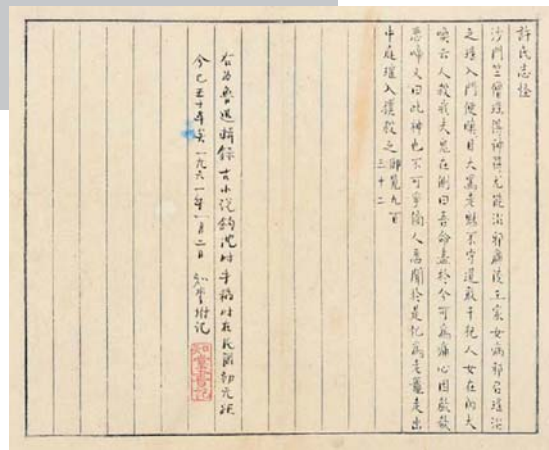 許氏志怪
沙門竺僧瑤得神符尤能治邪廣陵王家女病邪召瑤治
之瑤入門便瞋目大罵老魅不守道敢干犯人女在內大
喚云人殺我夫鬼在側曰吾命盡於今可為痛心因歔欷
悲啼又曰此神也不可爭傍人悉聞於是化為老鼉走出
中庭瑤入撲殺之御覽九百
三十二
右為魯迅輯錄古小說鉤沈時手稿時在民國初元距
今已五十年矣一九六一年一月二日 知堂附記
知堂書記